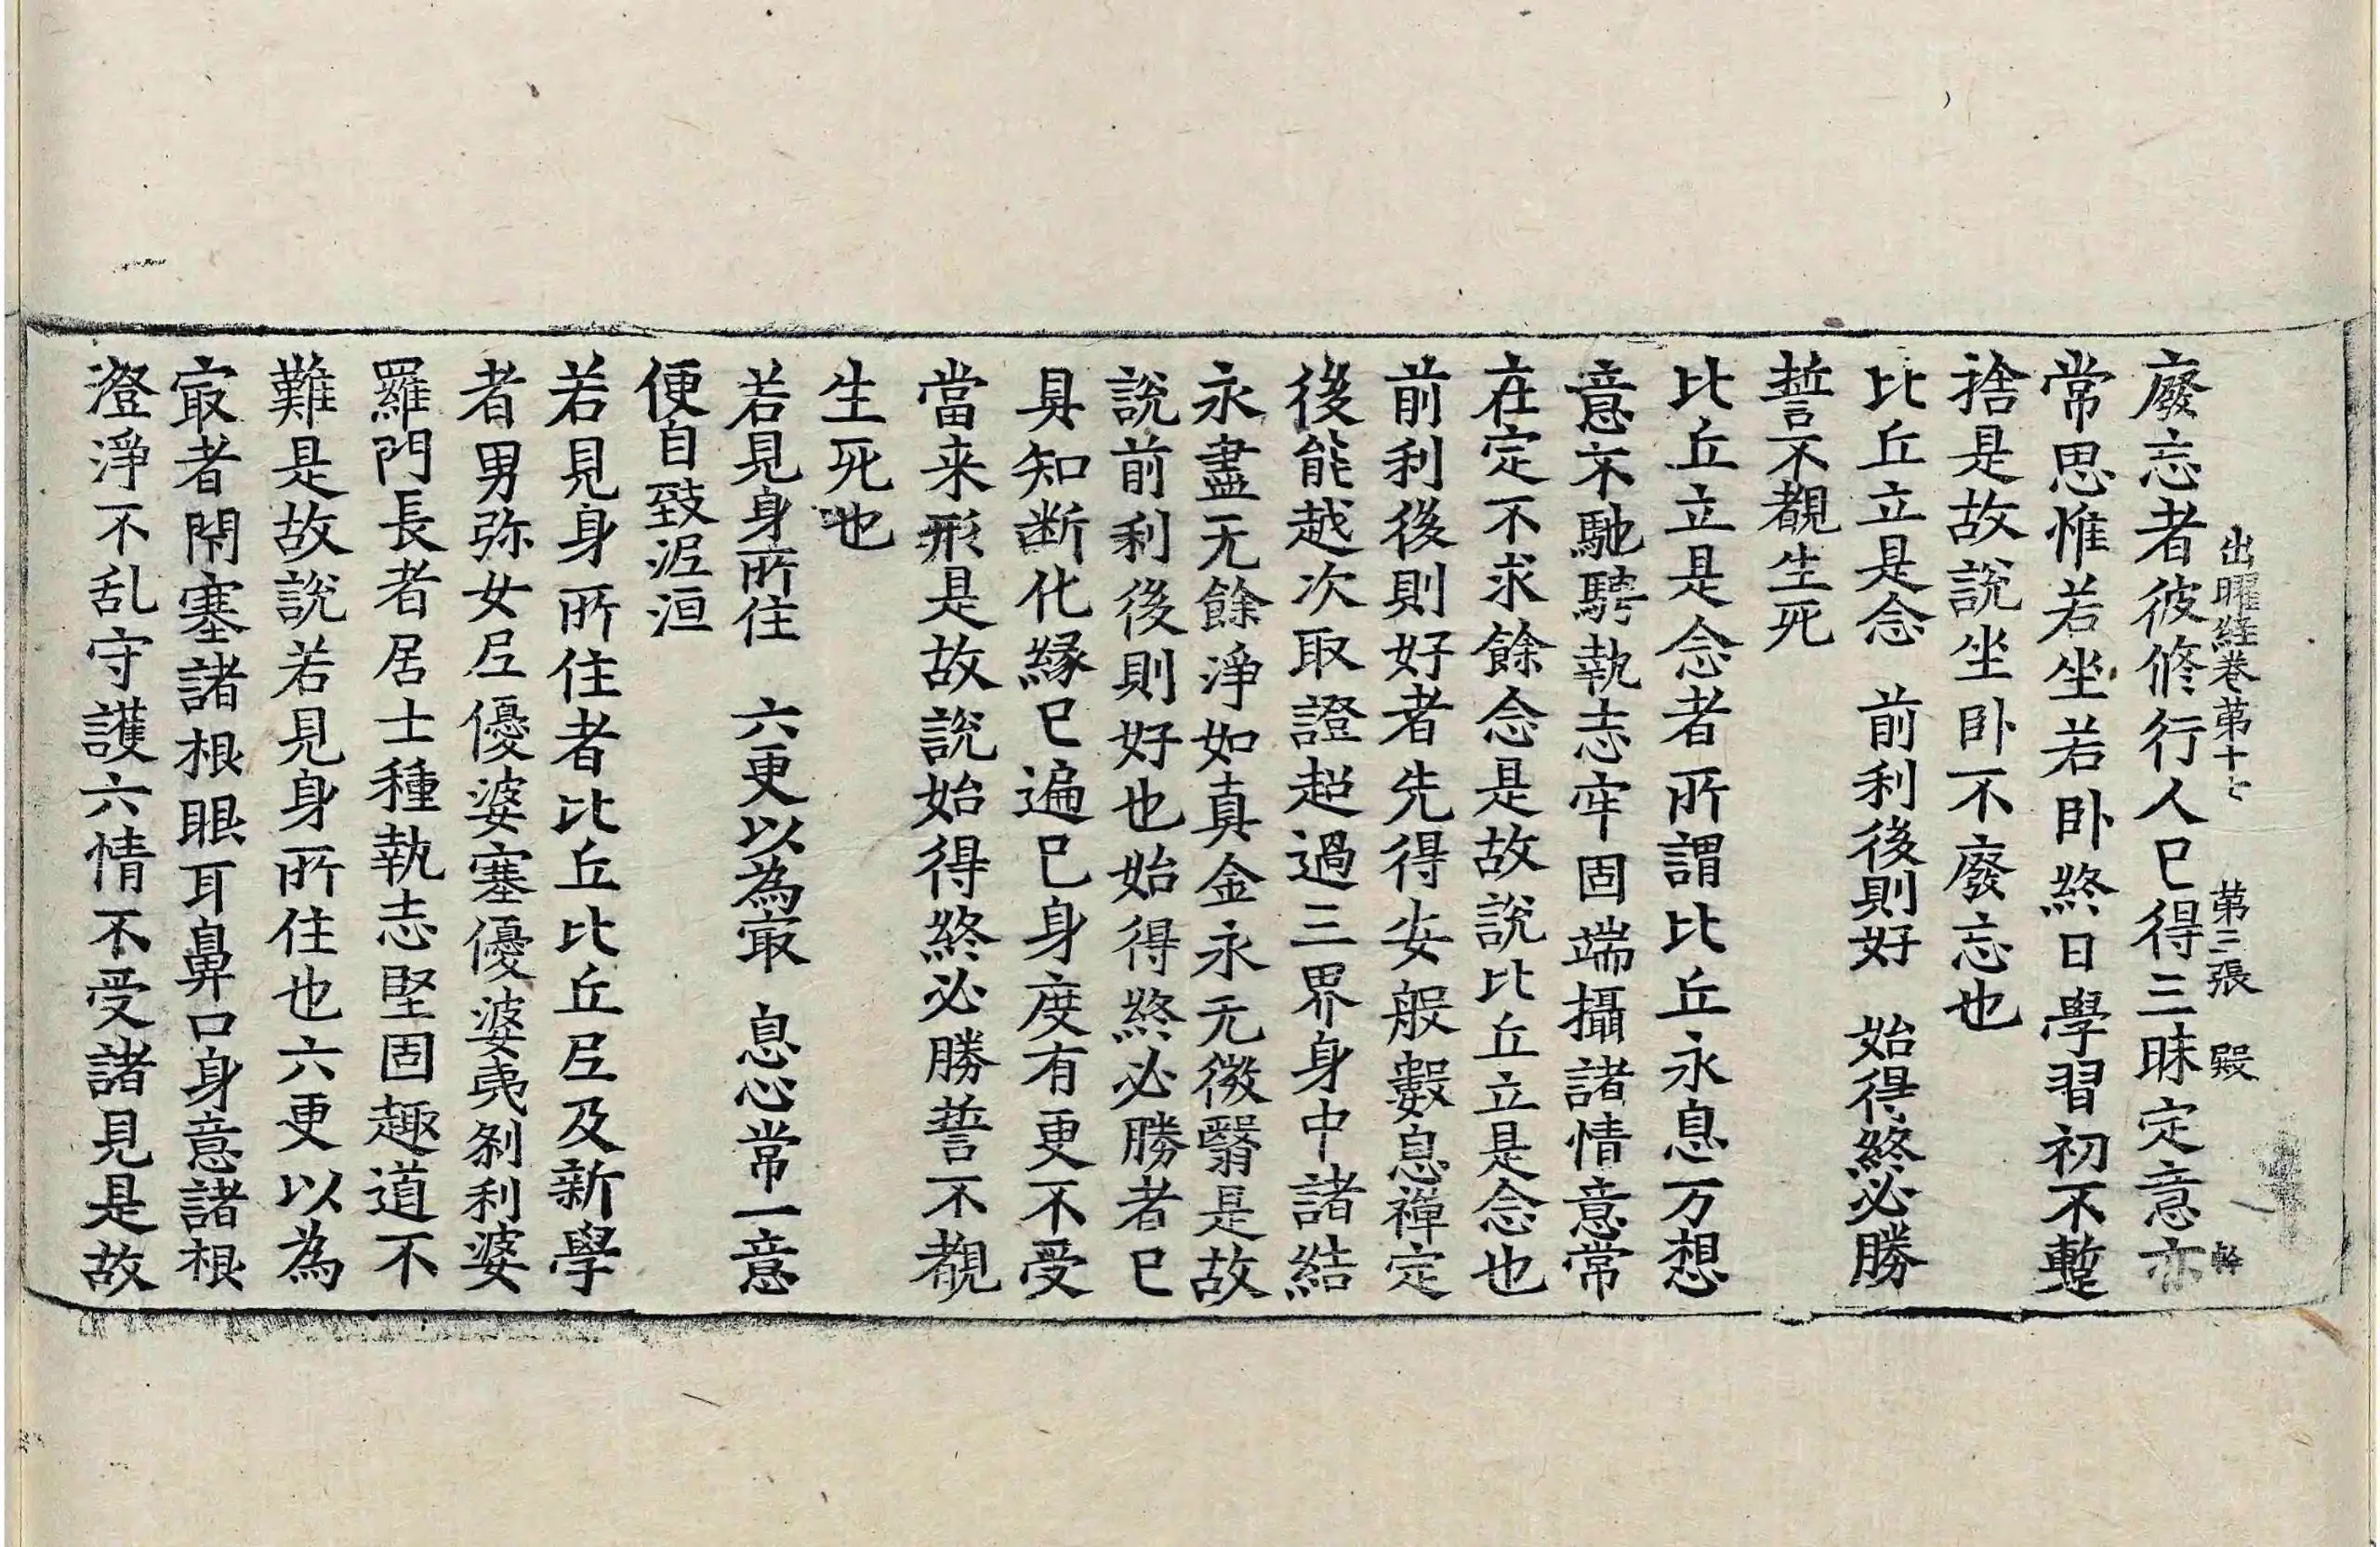 出曜経巻第十七 第三張 殿
廢忘者彼修行人已得三昧定意亦
常思惟若坐若卧終日學習初不蹔
捨是故說坐卧不廢忘也
比丘立是念 前利後則好 始得終必勝
誓不覩生死
比丘立是念者所謂比丘永息万想
意不馳騁執志牢固端攝諸情意常
在定不求餘念是故說比丘立是念也
前利後則好者先得安般數息禪定
後能越次取證超過三界身中諸結
永盡无餘淨如真金永无微翳是故
說前利後則好也始得終必勝者已
具知断化縁已遍已身度有更不受
當来形是故說始得終必勝誓不覩
生死也
若見身所住 六更以為㝡 息心常一意
便自致泥洹
若見身所住者比丘比丘尼及新學
者男弥女尼優婆塞優婆夷刹利婆
羅門長者居士種執志堅固趣道不
難是故說若見身所住也六更以為
㝡者閇塞諸根眼耳鼻口身意諸根
澄淨不乱守護六情不受諸見是故